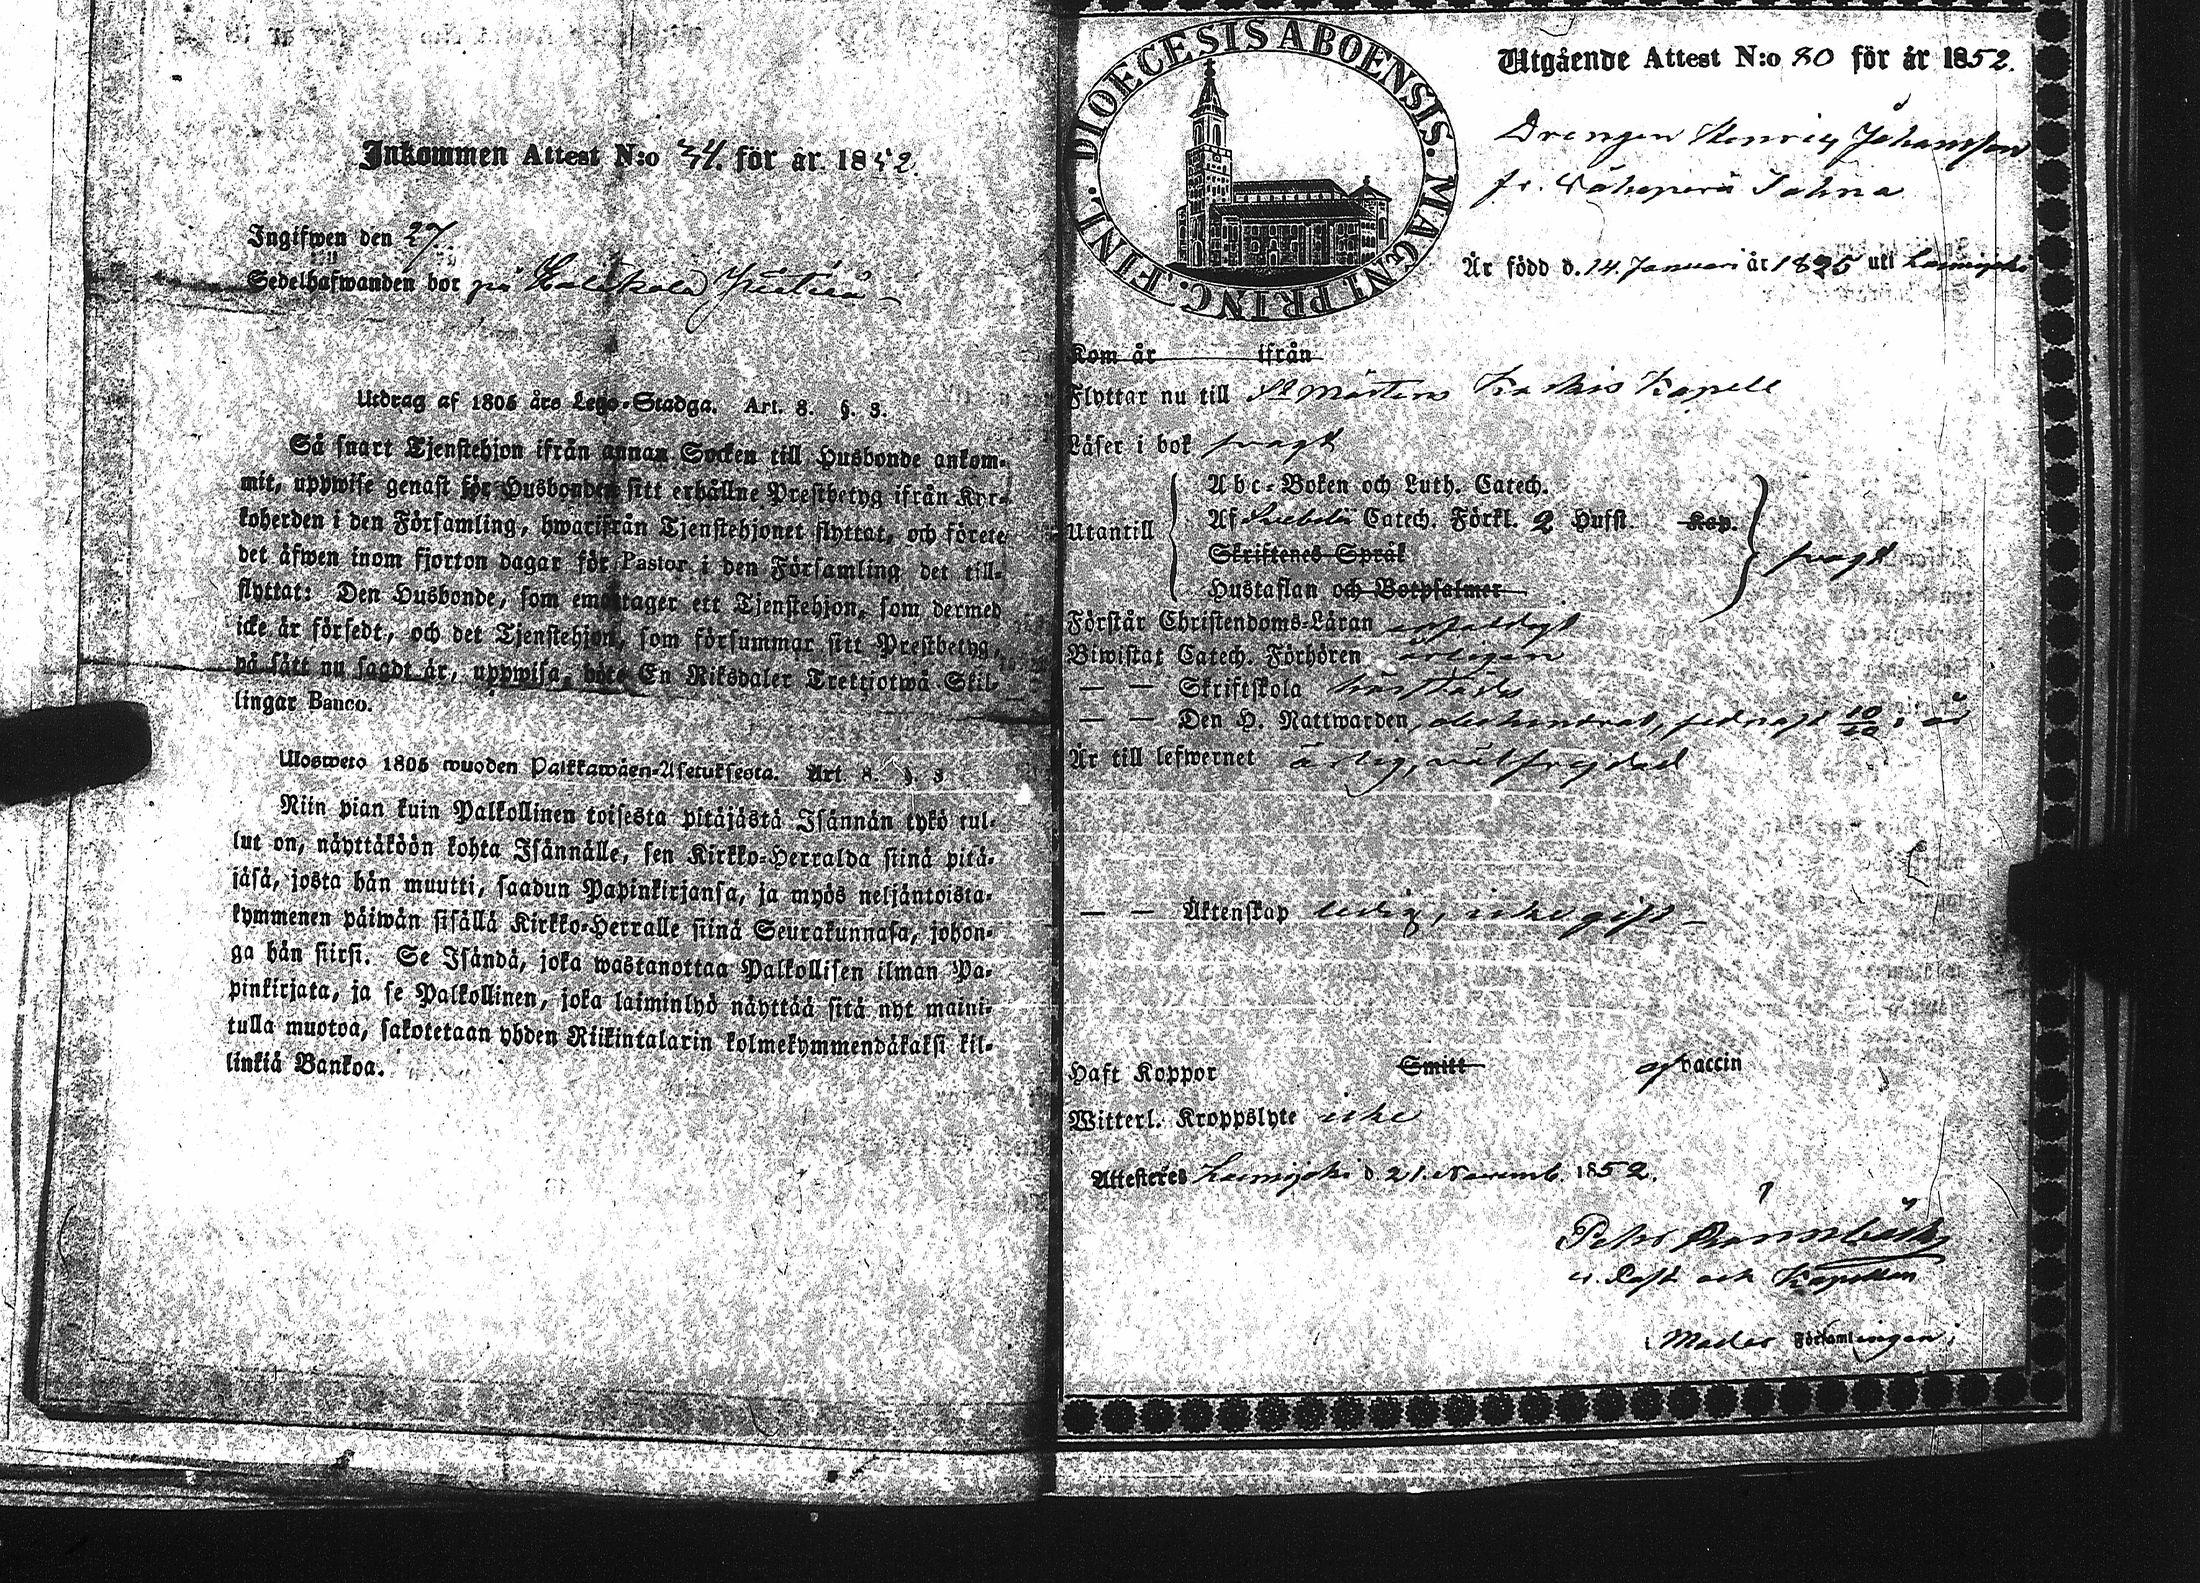 Inkommen Attest N:o 34. för år 1852.
Ingifwen den 27.
Sedelhafwanden bor på
Utdrag af 1805 års Lego-Stadga. Art. 8. §. 3.
Så snart Tjenstehjon ifrån annan Socken till Husbonde ankom-
mit, uppwise genast för Husbonden sitt erhållne Prestbetyg ifrån Kyr-
koherden i den Församling, hwarifrån Tjenstehjonet flyttat, och förete
det äfwen inom fjorton dagar för Pastor i den Församling det till-
flyttat: Den Husbonde, som emottager ett Tjenstehjon, som dermed
icke är försedt, och det Tjenstehjon, som försummar sitt Prestbetyg,
på sätt nu sagdt är, uppwisa, böte En Riksdaler Trettiotwå Skil-
lingar Banco.
Ulosweto 1805 wuoden Palkkawäen-Asetuksesta. Art. 8. §. 3
Niin pian kuin Palkollinen toisesta pitäjästä Isännän tykö tul-
lut on, näyttäköön kohta Isännälle, sen Kirkko-Herralda siinä pitä-
jäsä, josta hän muutti, saadun Papinkirjansa, ja myös neljäntoista-
kymmenen päiwän sisällä Kirkko-Herralle siinä Seurakunnasa, johon-
ga hän siirsi. Se Isändä, joka wastanottaa Palkollisen ilman Pa-
pinkirjata, ja se Palkollinen, joka laiminlyö näyttää sitä nyt maini-
tulla muotoa, sakotetaan yhden Riikintalarin kolmekymmendäkaksi kil-
linkiä Bankoa.
DIOECESIS ABOENSIS. MAGNI PRINC. FINL.
Utgående Attest N:o 80 för år 1852.
Drengen Henric Johansson
fr. Vähäperä Tahna
Är född d. 14. Januari år 1825 uti Loimijoki
Kom år ifrån
Flyttar nu till St Mårtens Koskis Kapell
Läser i bok svagt
Abc-Boken och Luth. Catech.
Utantill Af Svebelii Catech. Förkl. 2 Hufst. Kap. svagt
Skriftenes Språk
Hustaflan och Botpsalmer
Förstår Christendoms-Läran enfaldigt
Biwistat Catech. Förhören årligen
— — Skriftskola
— — Den H. Nattwarden, obehindrat, sednast 10/10 i år
Är till lefwernet ärlig, välfrejdad
— — Äktenskap ledig, icke gift —
Haft Koppor Smitt af vaccin
Witterl. Kroppslyte icke
Attesteres Loimijoki d. 21. Novemb. 1852.
Petr Rönnbäck,
v. Past. och Kapellan
i Moder Församlingen